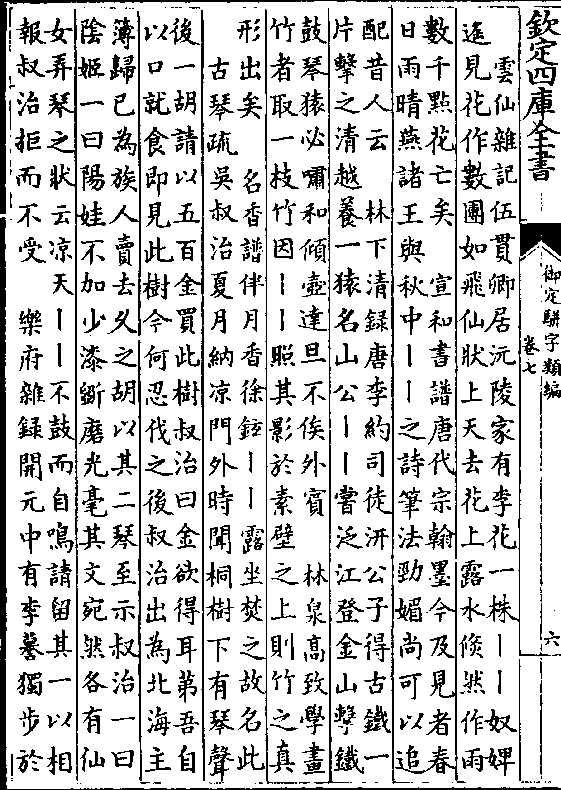 欽定四庫全書
御定駢字類編
卷七
六
雲仙雜記伍貫卿居沅陵家有李花一株丨丨奴婢
遙見花作數團如飛仙狀上天去花上露水倐然作雨
數千點花亡矣　宣和書譜唐代宗翰墨今及見者春
日雨晴燕諸王與秋中丨丨之詩筆法勁媚尚可以追
配昔人云　林下清録唐李約司徒汧公子得古鐵一
片擊之清越養一猿名山公丨丨嘗泛江登金山擊鐵
鼓琴猿必嘯和傾壺達旦不俟外賓　林泉高致學畫
竹者取一技竹因丨丨照其影於素壁之上則竹之真
形出矣　名香譜伴月香徐鉉丨丨露坐焚之故名此
古琴疏　吳叔治夏月納凉門外時聞桐樹下有琴聲
後一胡請以五百金買此樹叔治曰金欲得耳第吾自
以口就食即見此樹今何忍伐之後叔治出為北海主
薄歸已為族人賣去久之胡以其二琴至示叔治一曰
陰姬一曰陽娃不加少漆斵磨光毫其文宛然各有仙
女弄琴之狀云凉天丨丨不鼓而自鳴請留其一以相
報叔治拒而不受　樂府雜録開元中有李謩獨步於